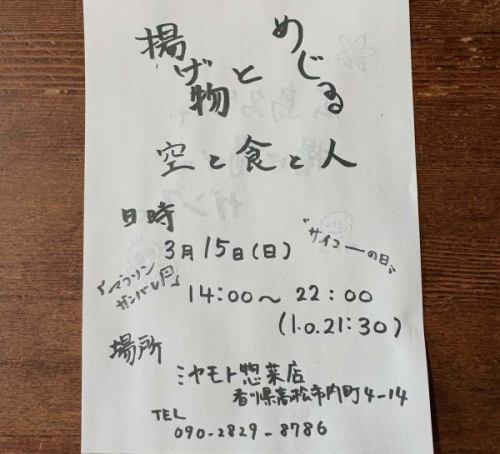 めじると
揚げ物
空と食と人
日時
3月15日(日)
"サイコーの日"
「マラソン
ガンバレ円」
14:00～22:00
(l.o.21:30)
場所
ミヤモト惣菜店
香川県高松市内町4-14
TEL
090-2829-8786